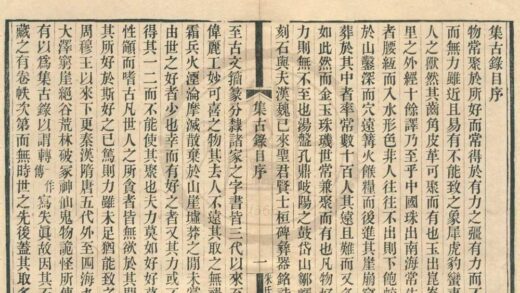 集古錄目序
物常聚於所好而常得於有力之彊有力而不
而無力雖近且易有不能致之象犀虎豹蠻
人之獸然其齒角皮革可聚而有也玉出崑崙
里之外經十餘譯乃至乎中國珠出南海常生
者腰絙而入水形色非人往往不出則下飽
於山鑿深而穴遠篝火餱糧而後進其崖崩窟
葬於其中者率常數十百人其遠且難而又
如此然而金玉珠璣世常兼聚而有也凡物好
力則無不至也湯盤孔鼎岐陽之鼓岱山鄒嶧
刻石與夫漢魏已來聖君賢士桓碑彝器銘詩
集古錄目序
一
至古文籀篆分隸諸家之字書皆三代以來
偉麗工妙可喜之物其去人不遠其取之無禍
霜兵火湮淪磨滅散棄於山崖墟莽之間未嘗
由世之好者少也幸而有好之者又其力或
得其一二而不能使其聚也夫力莫如好好
性顓而嗜古凡世人之所貪者皆無欲於其間
其所好於斯好之已篤則力雖未足猶能致之
周穆王以來下更秦漢隋唐五代外至四海
大澤窮崖絕谷荒林破冢神仙鬼物詭怪所傳
有以為集古錄以謂轉作傳寫失眞故因其石
藏之有卷帙次第而無時世之先後蓋其取多